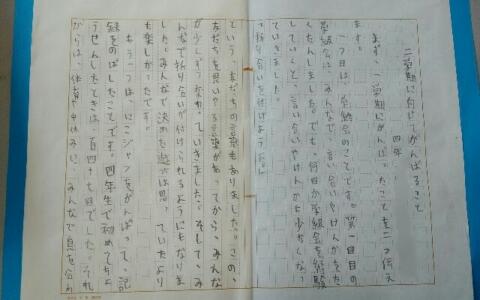 二学期に向けてがんばること
四年
まず、一学期にがんばったことを二つ伝え
ます。
一つ目は、学級会のことです。第一回目の
学級会は、みんなで、言い合いやけんかをた
くさんしました。でも、何回か学級会を経験
していくと、言い合いやけんかも少なくなっ
ていきました。
「折り合いを付けようよ。」
という、友だちの言葉もありました。この、
友だちを思いやる言葉があってから、みんな
が少しずつ変わっていきました。そして、み
んなで折り合いが付けられるようにもなりま
した。みんなで決めた遊びは思っていたより
も楽しかったです。
もう一つは、にこジャンをがんばって、記
録をのばしたことです。四年生で初めてちょ
うせんしたときは、百四十七回でした。それ
からは、体育や中休みに、みんなで息を合わ